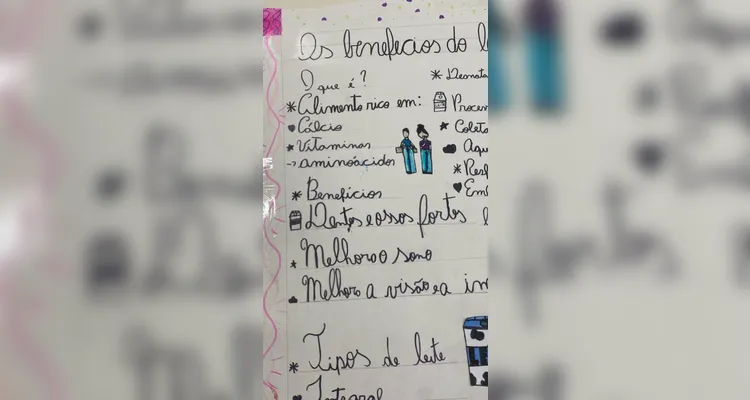 Os benefecios do l
O que é?
* Alimento rico em:
Cálcio
* Vitaminas
→ aminoácidos
* Beneficios
Dentes e ossos fortes
* Melhora o sono
Melhora a visão e a im
* Tipos de leite
Integral
* Desnata
Proces
* Coleta
Aqu
* Resf
Emb